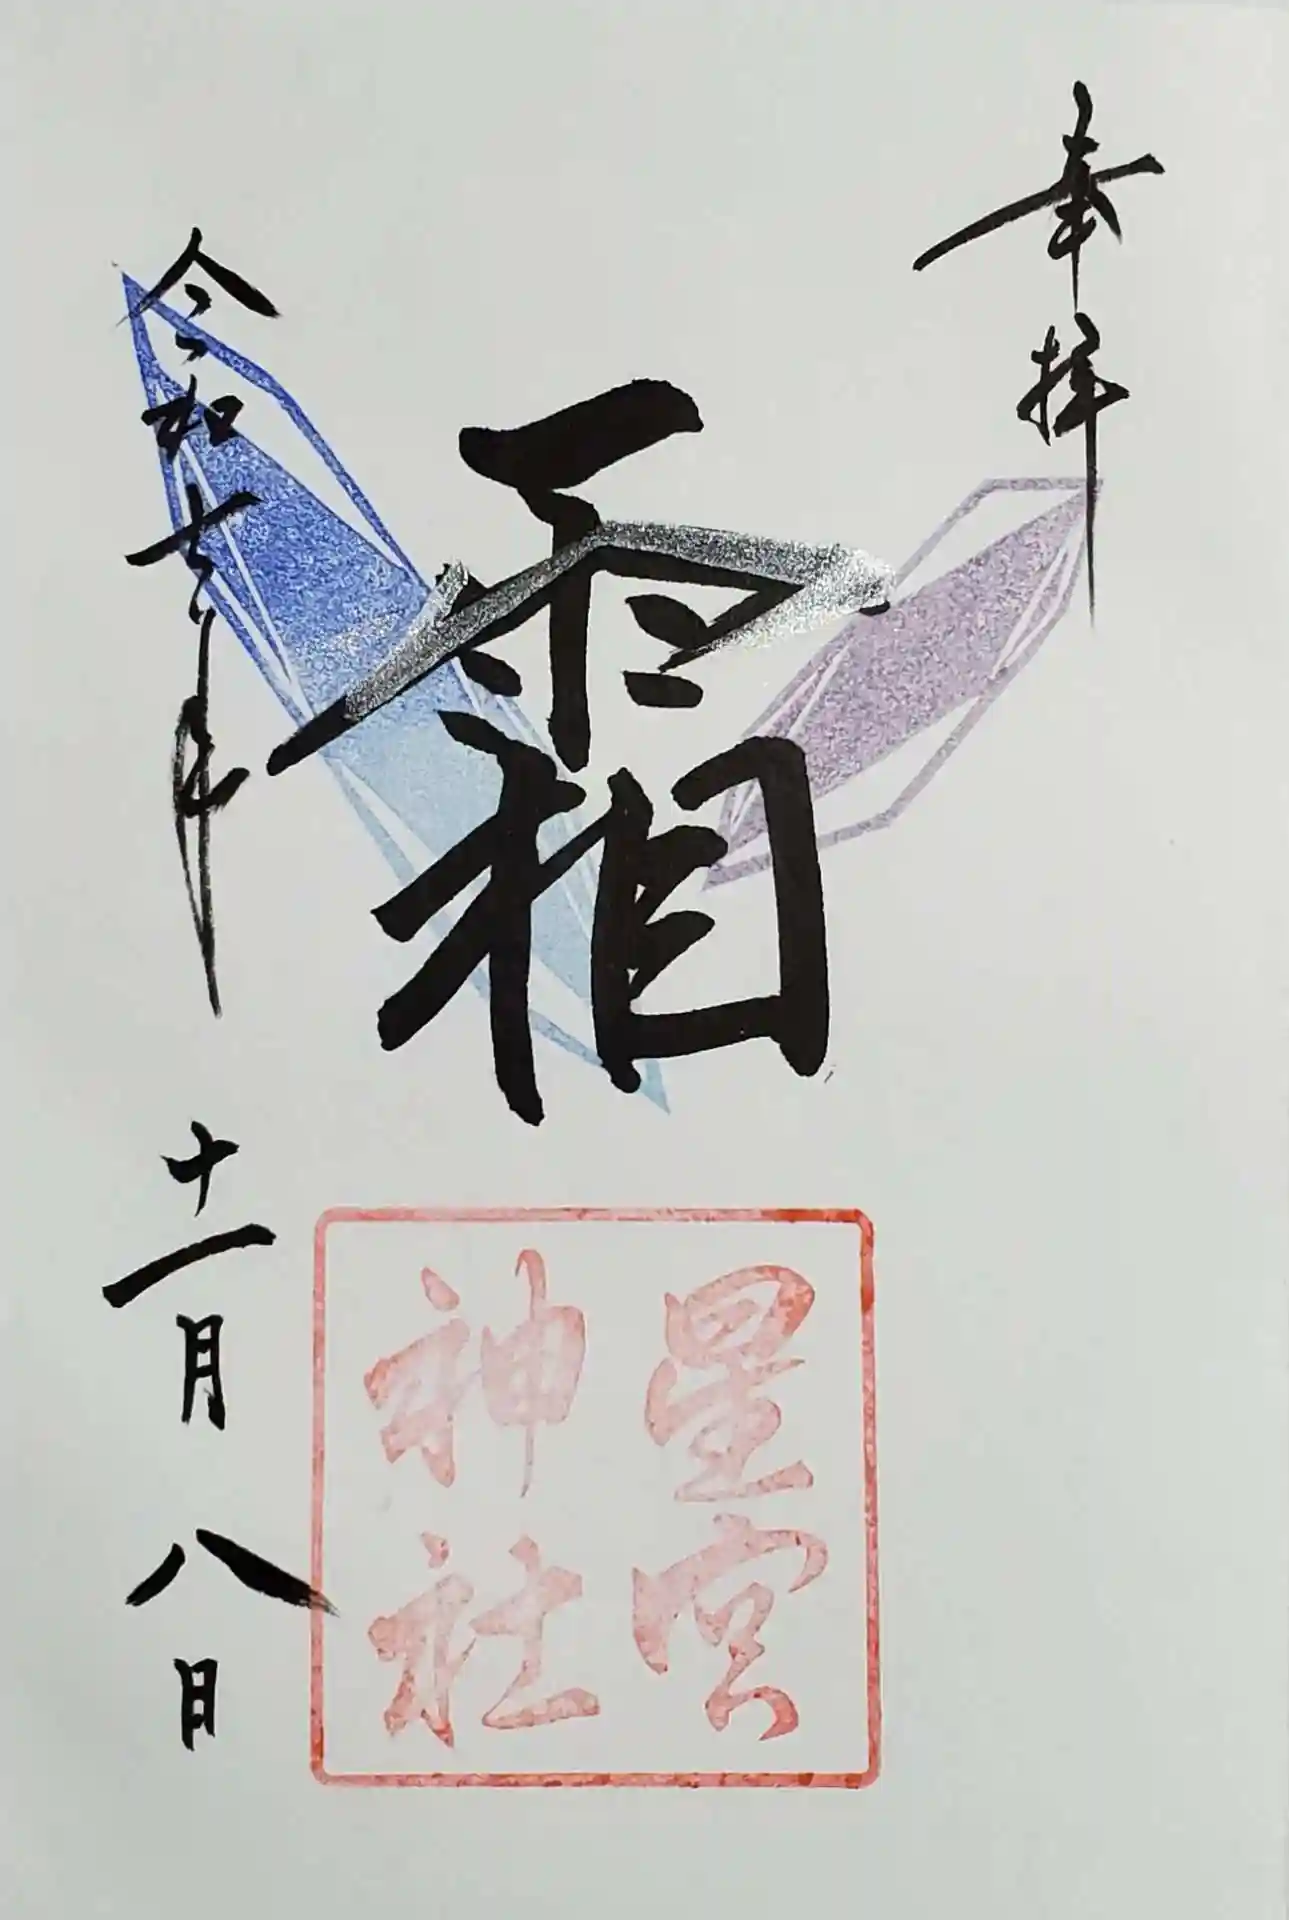 奉拝
霜
星宮
神社
令和七年
十一月八日